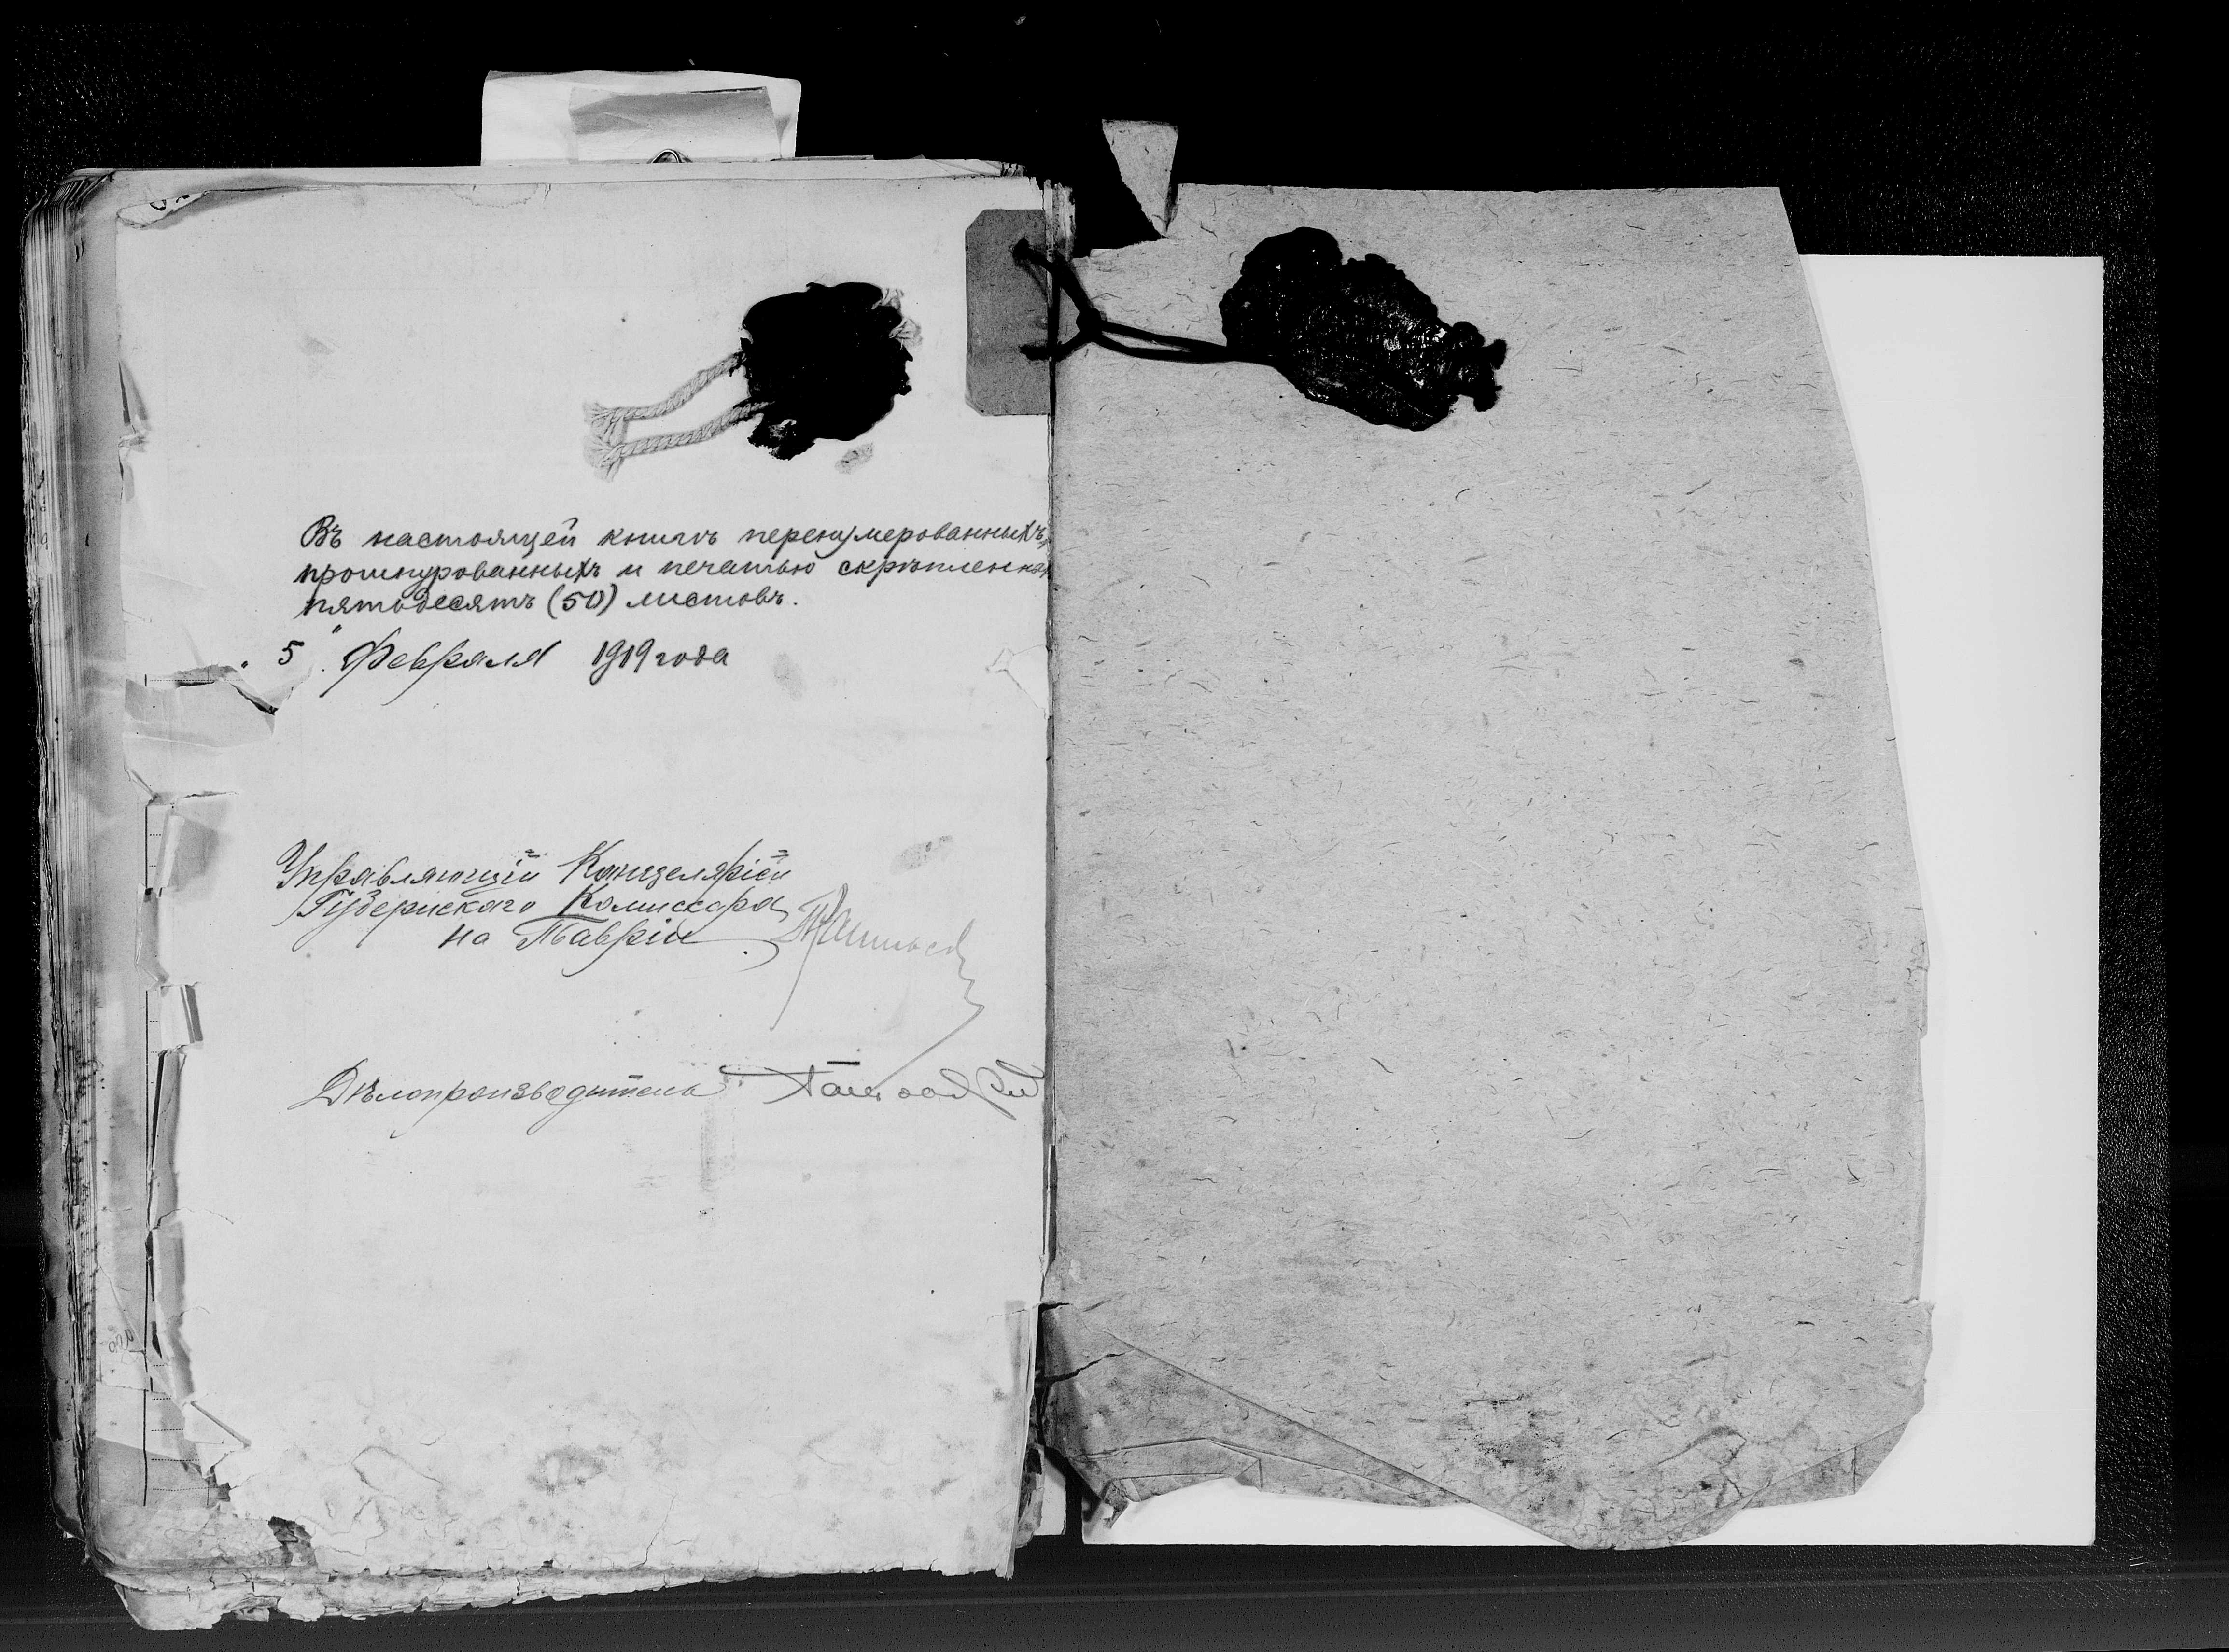 Въ настоящей книгѣ перенумерованныхъ,
прошнурованныхъ и печатью скрѣпленных
пятьдесятъ (50) листовъ.
„5" Февраля 1919 года
Управляющій Канцеляріей
Губернскаго Комиссара
на Тавріи
Дѣлопроизводитель